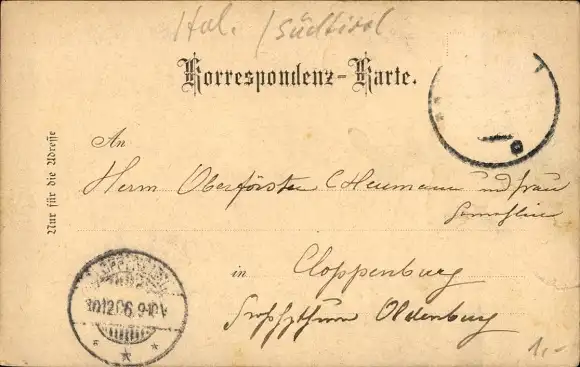 Ital. / Südtirol
Korrespondenz-Karte.
Nur für die Adresse
An
Herrn Oberförster C Heumann und Frau
Gemahlin
in Cloppenburg
Großhzthum Oldenburg
10.12.06. 9-10V
1,-